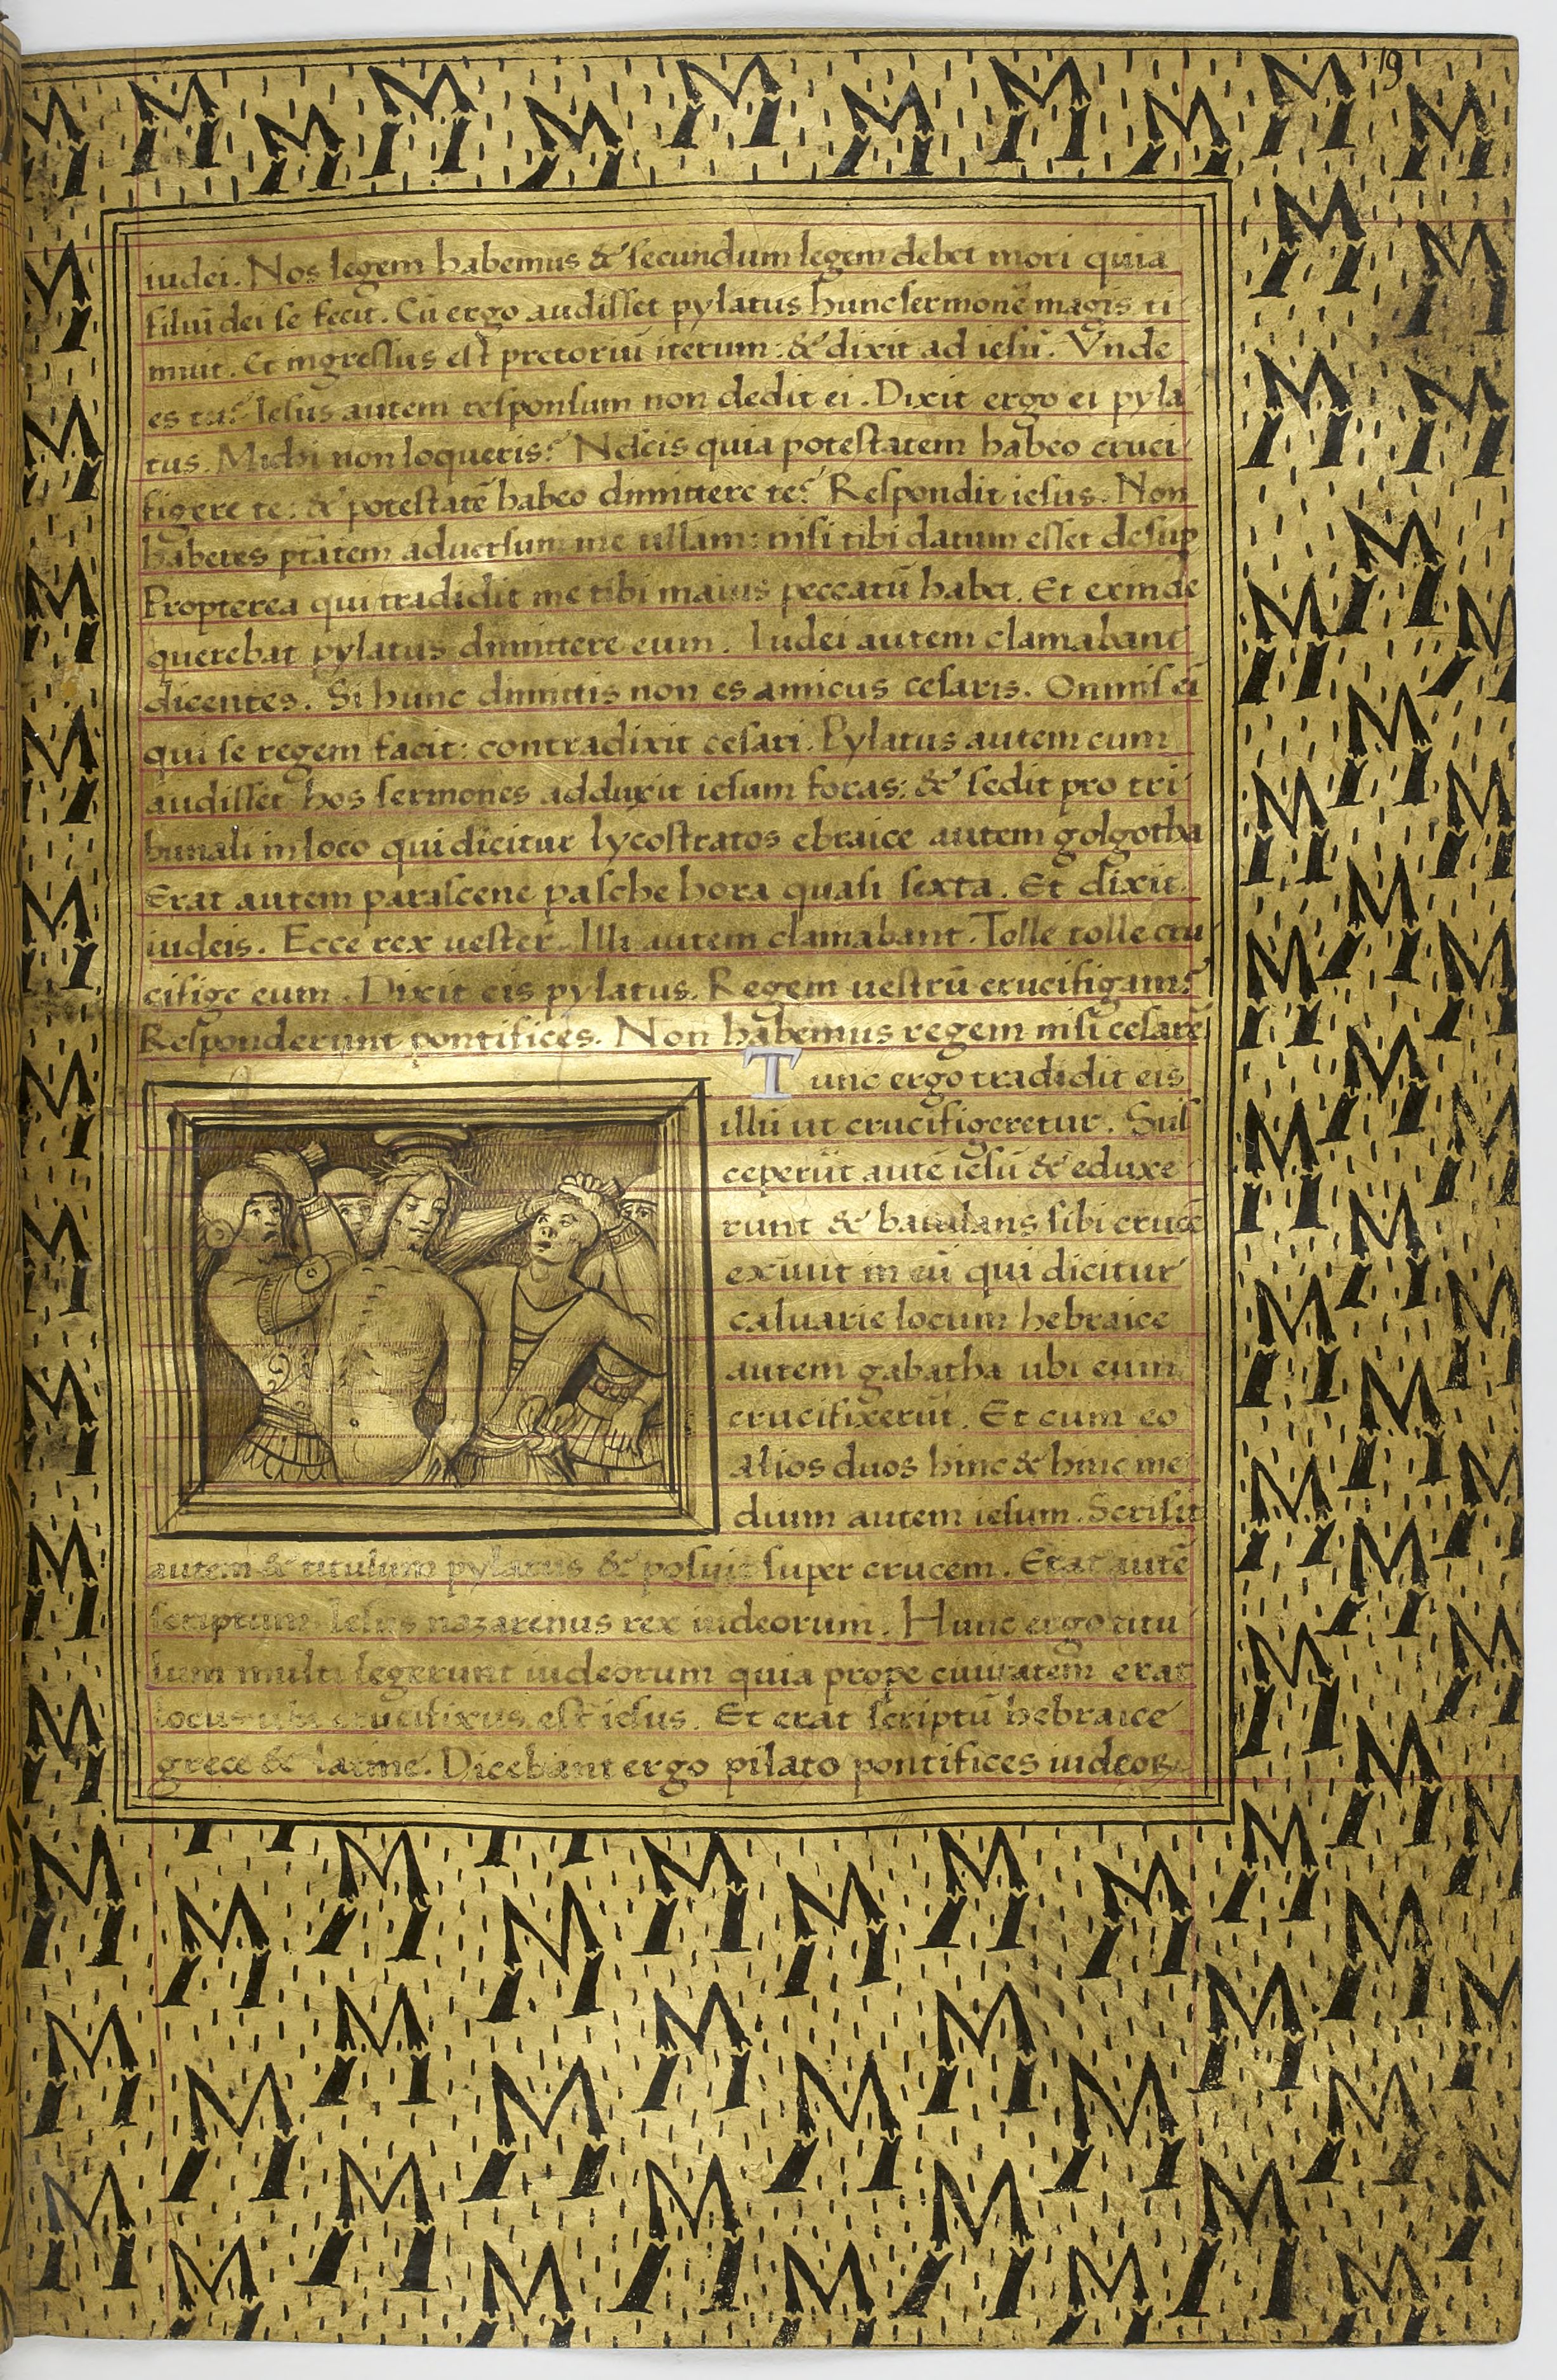 19
iudei. Nos legem habemus & secundum legem debet mori quia
filiū dei se fecit. Cū ergo audisset pylatus hunc sermonē magis ti
muit. Et ingressus est pretoriū iterum: & dixit ad iesū. Vnde
es tu? Iesus autem responsum non dedit ei. Dixit ergo ei pyla
tus. Michi non loqueris? Nescis quia potestatem habeo cruci
figere te: & potestatē habeo dimittere te? Respondit iesus. Non
haberes ptātem aduersum me ullam: nisi tibi datum esset desup
Propterea qui tradidit me tibi maius peccatū habet. Et exinde
querebat pylatus dimittere eum. Iudei autem clamabant
dicentes. Si hunc dimittis non es amicus cesaris. Omnis ei
qui se regem facit: contradixit cesari. Pylatus autem cum
audisset hos sermones adduxit iesum foras: & sedit pro tri
bunali in loco qui dicitur lycostratos ebraice autem golgotha
Erat autem parascene pasche hora quasi sexta. Et dixit
iudeis. Ecce rex uester. Illi autem clamabant. Tolle tolle cru
cifige eum. Dixit eis pylatus. Regem uestrū crucifigam?
Responderunt pontifices. Non habemus regem nisi cesarē
Tunc ergo tradidit eis
illū ut crucifigeretur. Sus
ceperūt autē iesū & eduxe
runt & baiulans sibi crucē
exiuit in eū qui dicitur
caluarie locum hebraice
autem gabatha ubi eum
crucifixerūt. Et cum eo
alios duos hinc & hinc me
dium autem iesum. Scrisit
autem & titulum pylatus & posuit super crucem. Erat autē
scriptum Iesus nazarenus rex iudeorum. Hunc ergo titu
lum multi legerunt iudeorum quia prope ciuitatem erat
locus ubi crucifixus est iesus. Et erat scriptū hebraice
grece & latine. Dicebant ergo pilato pontifices iudeoꝝ